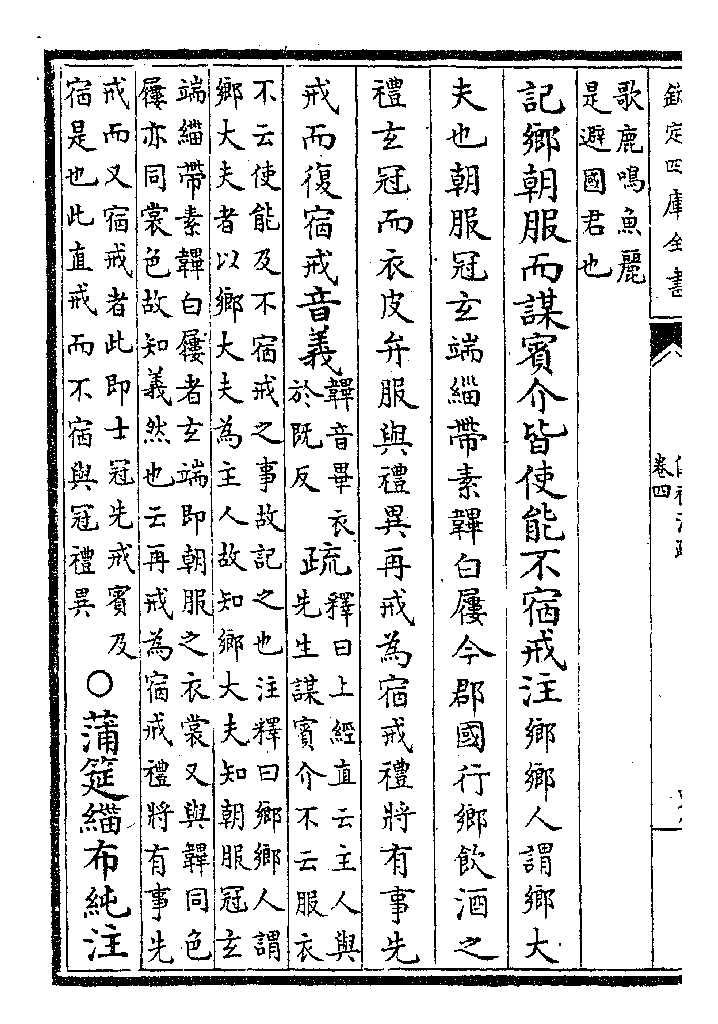 欽定四庫全書
卷四
歌鹿鳴魚麗
是避國君也
記鄉朝服而謀賓介皆使能不宿戒注鄉鄉人謂鄉大
夫也朝服冠玄端緇帶素韠白屨今郡國行鄉飲酒之
禮玄冠而衣皮弁服與禮異再戒為宿戒禮將有事先
戒而復宿戒音義韠音畢衣
於既反
疏釋曰上經直云主人與
先生謀賓介不云服衣
不云使能及不宿戒之事故記之也注釋曰鄉鄉人謂
鄉大夫者以鄉大夫為主人故知鄉大夫知朝服冠玄
端緇帶素韠白屨者玄端即朝服之衣裳又與韠同色
屨亦同裳色故知義然也云再戒為宿戒禮將有事先
戒而又宿戒者此即士冠先戒賓及
宿是也此直戒而不宿與冠禮異
○蒲筵緇布純注